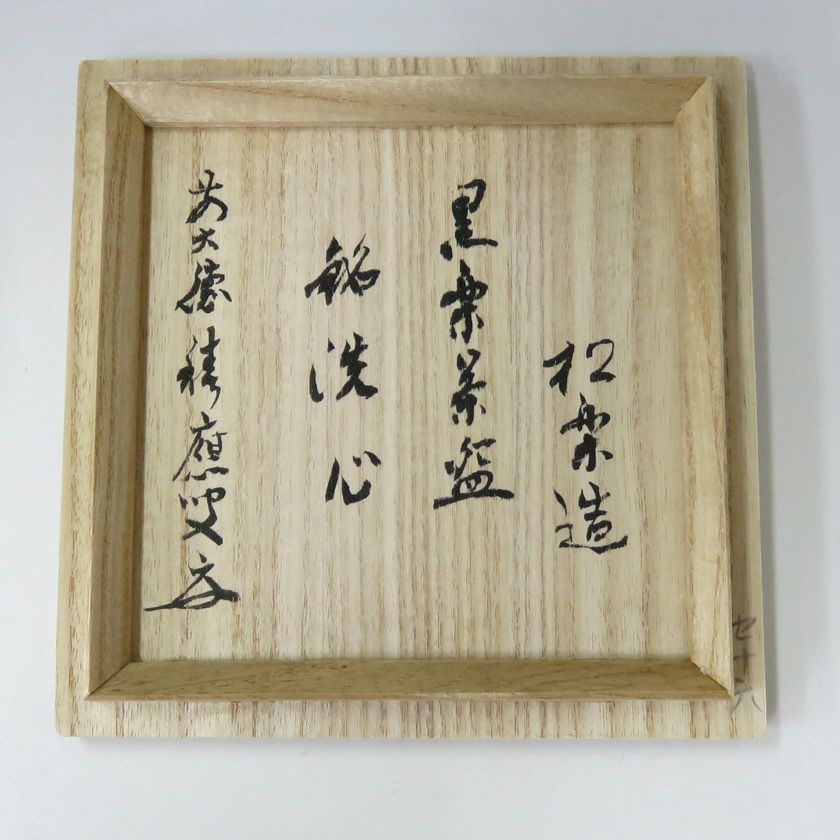 松楽造
黒楽茶盌
銘洗心
前大徳禅應叟
七十六